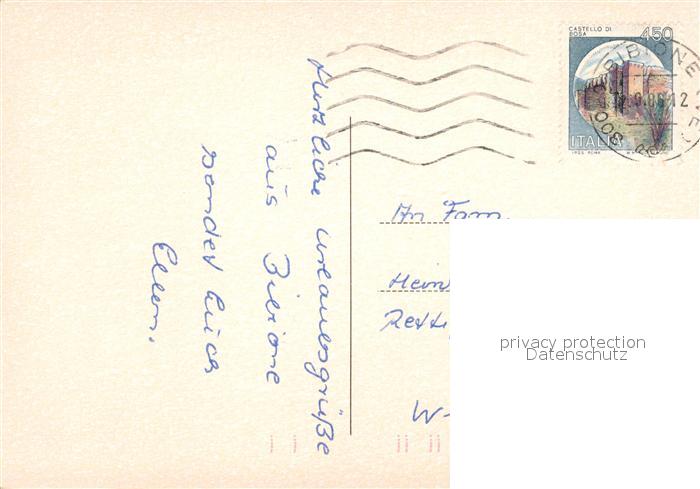 Herzliche Urlaubsgrüße
aus Bibione
sendet Euch
Ellen.
CASTELLO DI
BOSA
450
ITALIA
BIBIONE
An Fam.
W-
privacy protection
Datenschutz